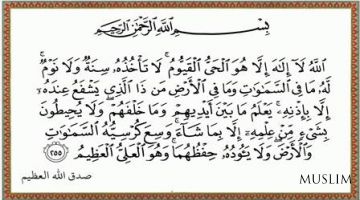 بِسْمِ اللَّهِ الرَّحْمَٰنِ الرَّحِيمِ
اللَّهُ لَا إِلَٰهَ إِلَّا هُوَ الْحَيُّ الْقَيُّومُ ۚ لَا تَأْخُذُهُ سِنَةٌ وَلَا نَوْمٌ ۚ
لَّهُ مَا فِي السَّمَاوَاتِ وَمَا فِي الْأَرْضِ ۗ مَن ذَا الَّذِي يَشْفَعُ عِندَهُ
إِلَّا بِإِذْنِهِ ۚ يَعْلَمُ مَا بَيْنَ أَيْدِيهِمْ وَمَا خَلْفَهُمْ ۖ وَلَا يُحِيطُونَ
بِشَيْءٍ مِّنْ عِلْمِهِ إِلَّا بِمَا شَاءَ ۚ وَسِعَ كُرْسِيُّهُ السَّمَاوَاتِ
وَالْأَرْضَ ۖ وَلَا يَئُودُهُ حِفْظُهُمَا ۚ وَهُوَ الْعَلِيُّ الْعَظِيمُ ﴿٢٥٥﴾
صدق الله العظيم
MUSLIM